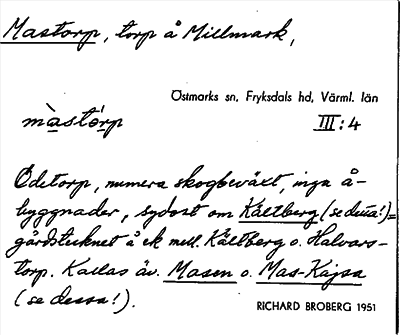 Mastorp, torp å Millmark,
Östmarks sn, Fryksdals hd, Värml. län
màstórp
III:4
Ödetorp, numera skogbeväxt, inga å-
byggnader, sydost om Kältberg (se detta!)=
gårdstecknet å ek mell. Kältberg o. Halvars-
torp. Kallas äv. Masen o. Mas-Kajsa
(se dessa!).
RICHARD BROBERG 1951